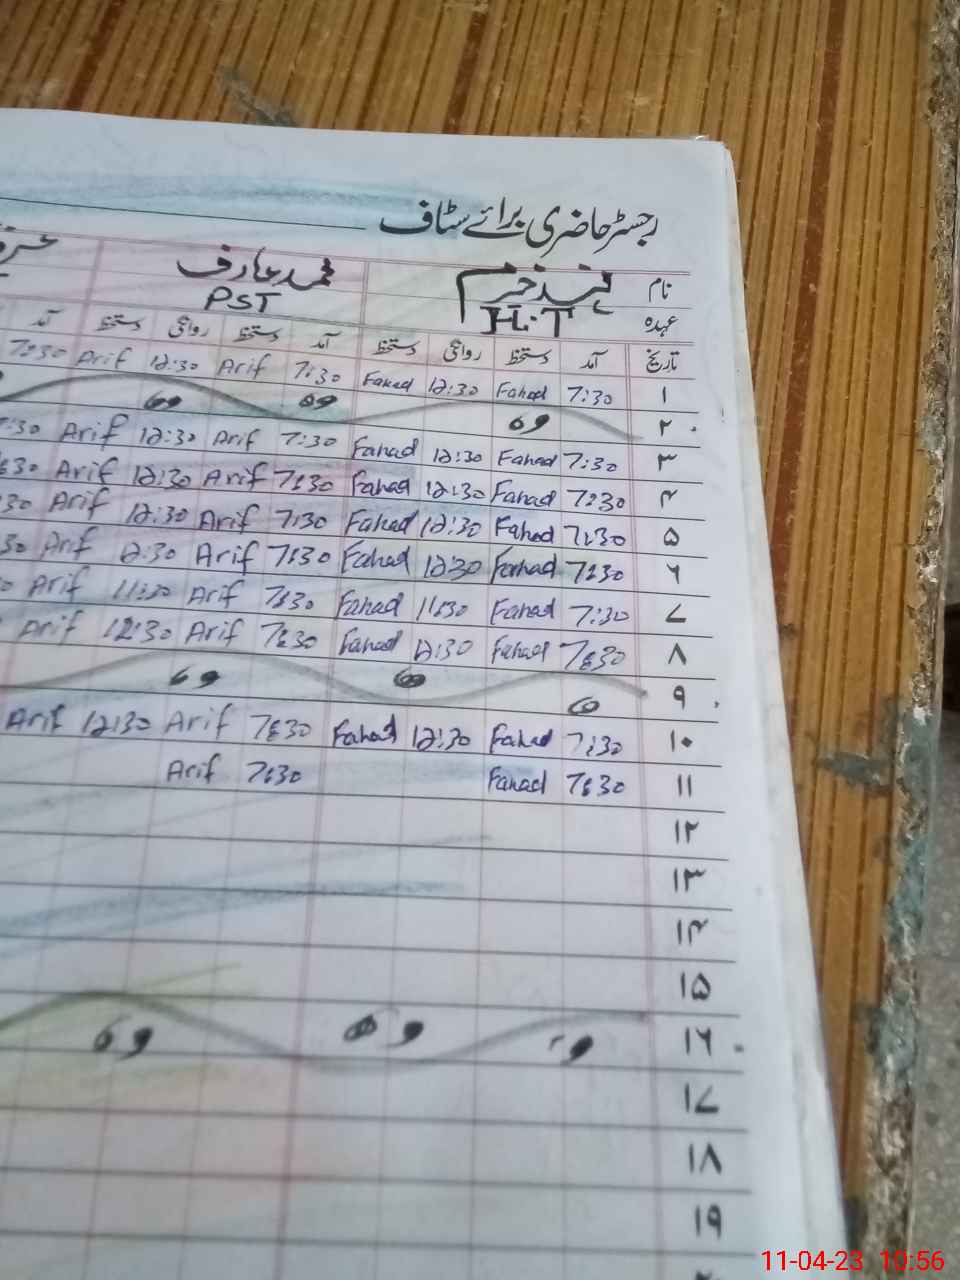 رجسٹر حاضری برائے سٹاف
نام فہد خرم محمد عارف
عہدہ H.T PST
تاریخ آمد دستخط روانگی دستخط آمد دستخط روانگی دستخط آمد
۱ 7:30 Fahad 12:30 Fahad 7:30 Arif 12:30 Arif 7:30
۲
۳ 7:30 Fahad 12:30 Fahad 7:30 Arif 12:30 Arif :30
۴ 7:30 Fahad 12:30 Fahad 7:30 Arif 12:30 Arif :30
۵ 7:30 Fahad 12:30 Fahad 7:30 Arif 12:30 Arif :30
۶ 7:30 Fahad 12:30 Fahad 7:30 Arif 12:30 Arif 30
۷ 7:30 Fahad 11:30 Fahad 7:30 Arif 11:30 Arif
۸ 7:30 Fahad 12:30 Fahad 7:30 Arif 12:30 Arif
۹
۱۰ 7:30 Fahad 12:30 Fahad 7:30 Arif 12:30 Arif
۱۱ 7:30 Fahad 7:30 Arif
۱۲
۱۳
۱۴
۱۵
۱۶
۱۷
۱۸
۱۹
11-04-23 10:56